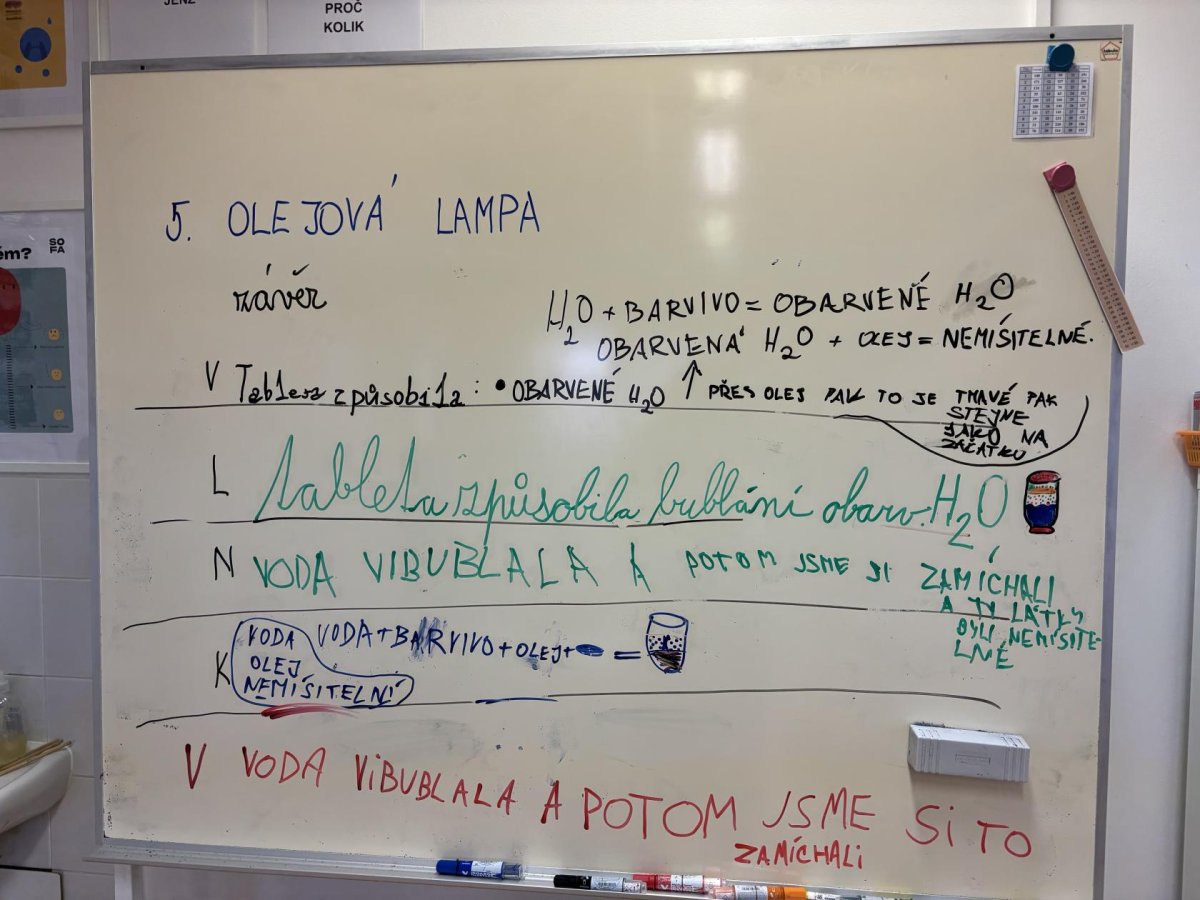 JENŽ
PROČ
KOLIK
ém?
SO
FA
5. OLEJOVÁ LAMPA
závěr
H2O + BARVIVO = OBARVENÉ H2O
OBARVENÁ H2O + OLEJ = NEMIŠITELNÉ.
V Tableta způsobila: • OBARVENÉ H2O ↑ PŘES OLEJ PAK TO JE TMAVÉ PAK
STEJNE
JAKO NA
ZAČÁTKU
L tableta způsobila bublání obarv. H2O
N VODA VIBUBLALA A POTOM JSME JI ZAMÍCHALI
A TY LÁTKY
BYLI NEMISITE-
LNÉ
K VODA VODA+BARVIVO+OLEJ+ =
OLEJ
NEMIŠITELNÍ
V VODA ViBUBLALA A POTOM JSME Si TO
ZAMÍCHALi